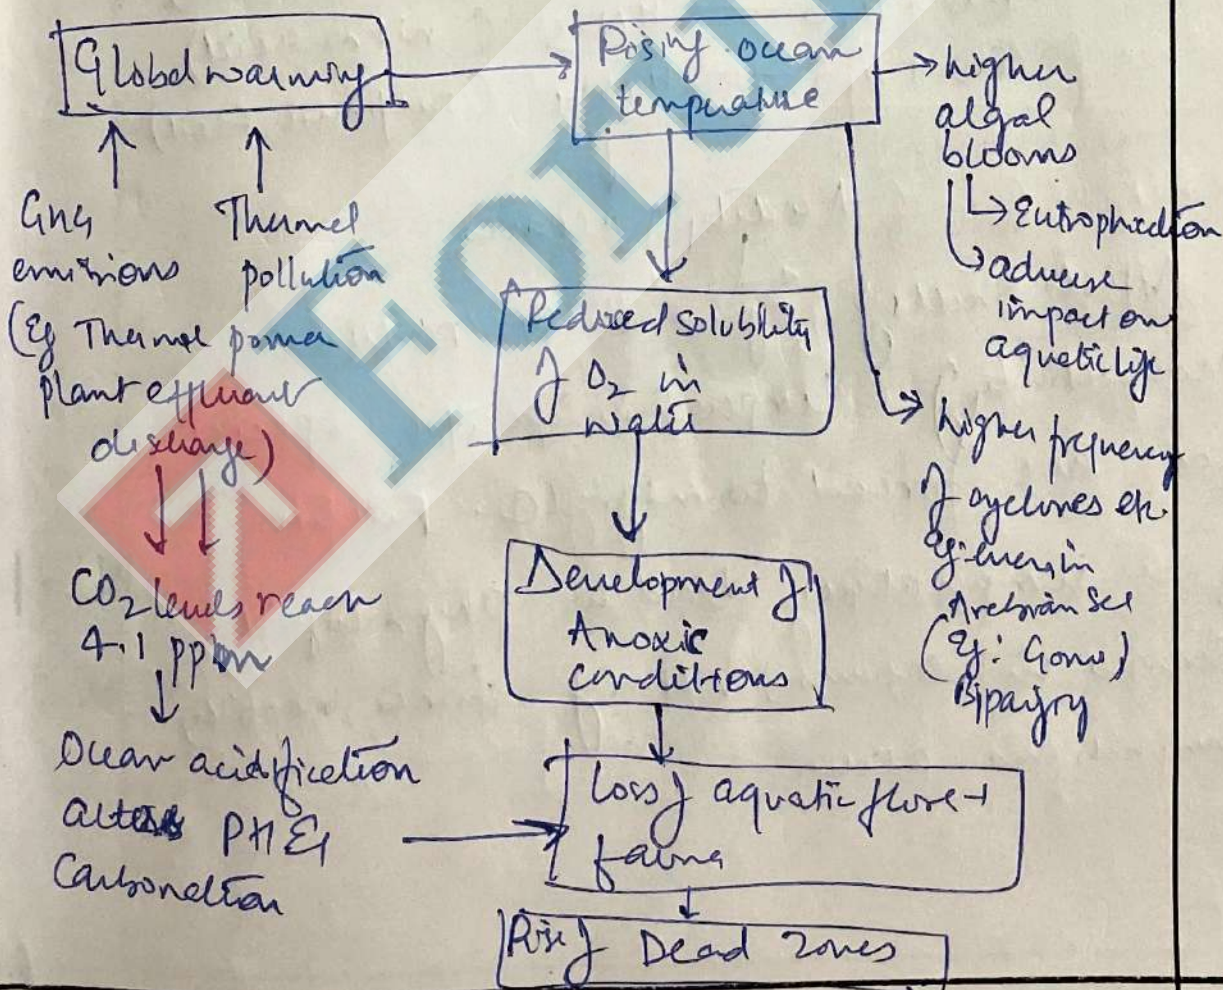 Global warming
Rising ocean
temperature
higher
algal
blooms
Eutrophication
adverse
impact on
aquatic life
GHG
emissions
Thermal
pollution
(Eg Thermal power
plant effluent
discharge)
Reduced solubility
of O2 in
water
higher frequency
of cyclones etc
Eg: even in
Arabian Sea
(Eg: Gonu)
Bipajoy
CO2 levels reach
4.1 ppm
Development of
Anoxic
conditions
Ocean acidification
alters PH &
Carbonation
Loss of aquatic flora +
fauna
Rise of Dead Zones
Forum